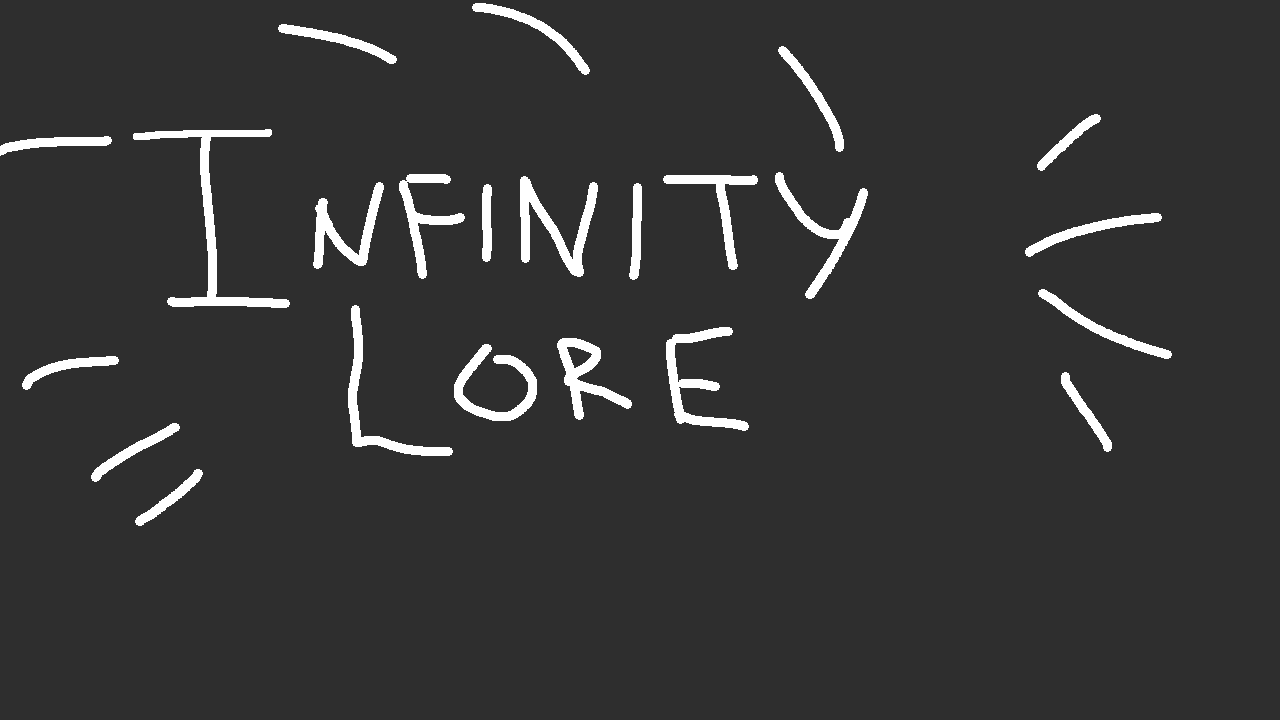 INFINITY
LORE